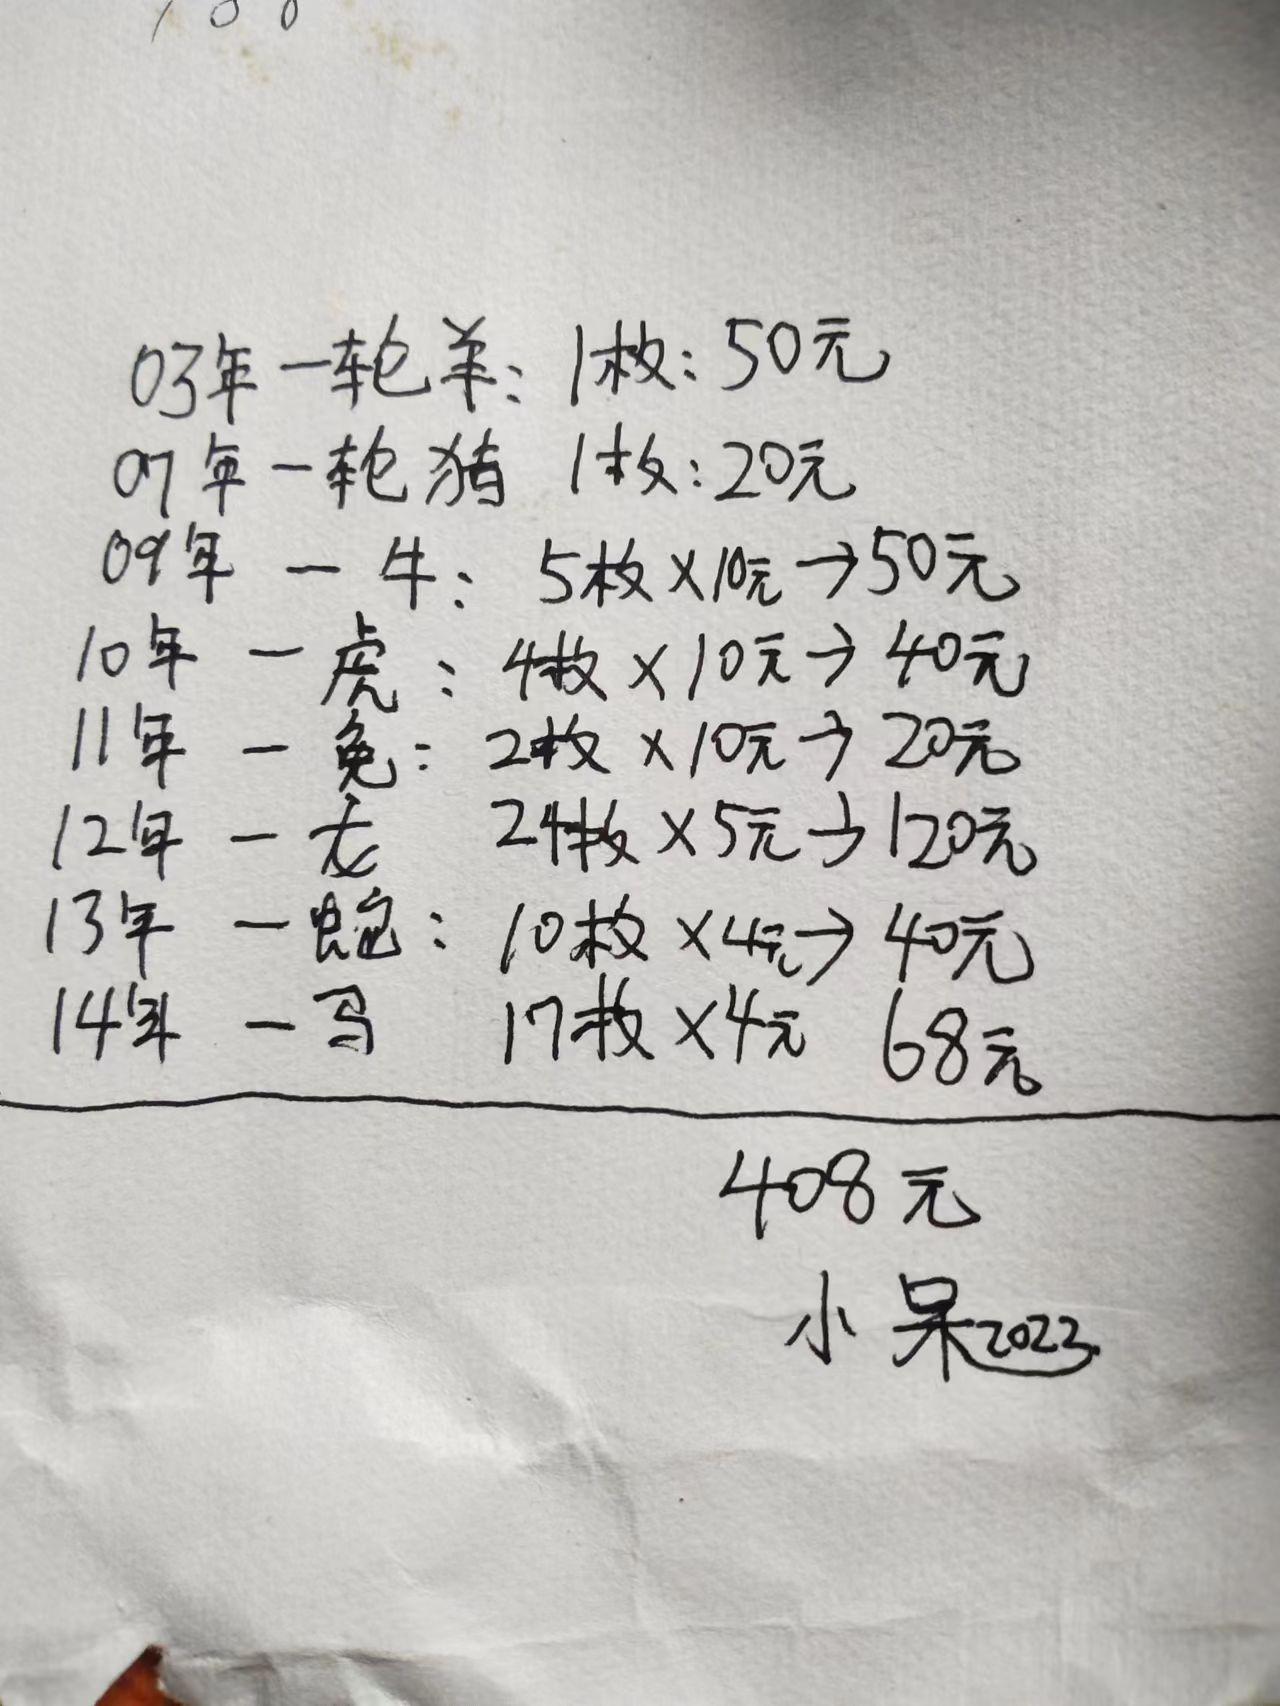 03年一轮羊：1枚：50元
07年一轮猪 1枚：20元
09年 － 牛： 5枚×10元→50元
10年 － 虎： 4枚×10元→40元
11年 － 兔： 2枚×10元→20元
12年 － 龙 24枚×5元→120元
13年 － 蛇： 10枚×4元→40元
14年 － 马 17枚×4元 68元
408元
小呆2023.